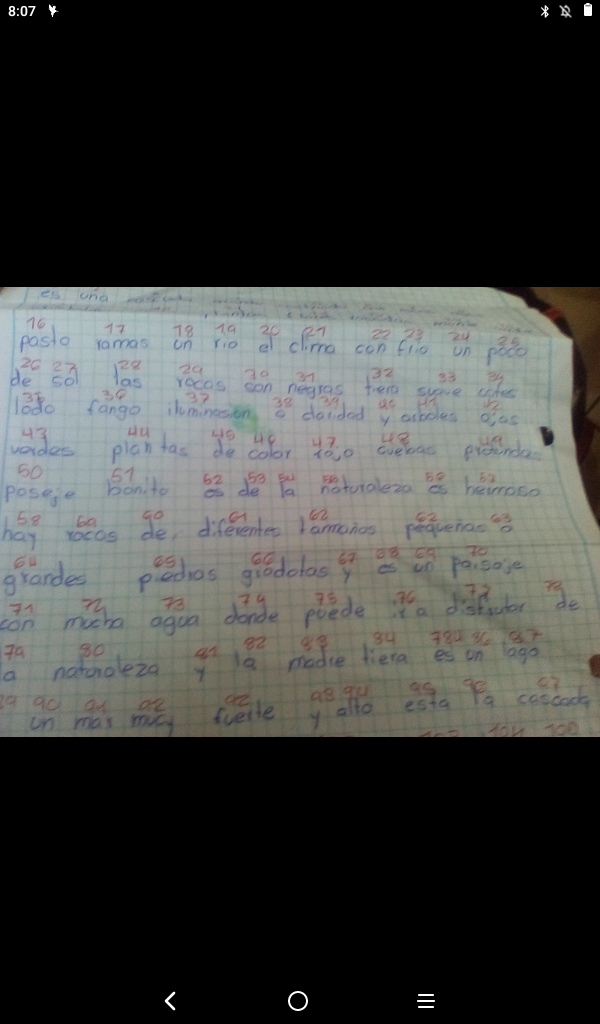 8:07
es una
16 17 18 19 20 21 22 23 24 25
pasto ramas un rio el clima con frio un poco
26 27 28 29 30 31 32 33 34
de sol las rocas son negras tiera suave cafes
35 36 37 38 39 40 41 42
lodo fango iluminasion o claridad y arboles ojas
43 44 45 46 47 48 49
verdes plantas de color rojo cuebas profundas
50 51 52 53 54 55 56 57
paseje bonito es de la naturaleza es hermoso
58 59 60 61 62 62 63
hay rocas de diferentes tammaños pequeñas o
64 65 66 67 68 69 70
grandes piedras y es un paisaje
71 72 73 74 75 76 77 78
con mucha agua donde puede ir a disfrutar de
79 80 81 82 83 84 86 87
la naturaleza y la madre tiera es un lago
89 90 91 92 92 93 94 95 96 97
un mar muy fuerte y alto esta la cascada